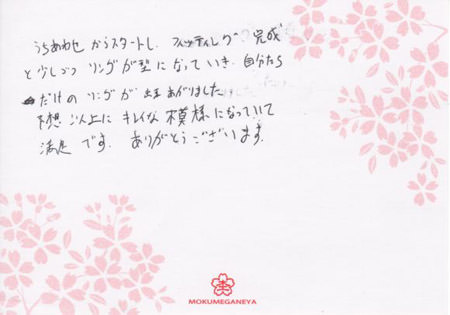 うちあわせからスタートし、フィッティング、完成
と少しづつリングが型になっていき、自分たち
だけのリングが出来あがりました
予想以上にキレイな模様になっていて
満足です。ありがとうございます。
MOKUMEGANEYA